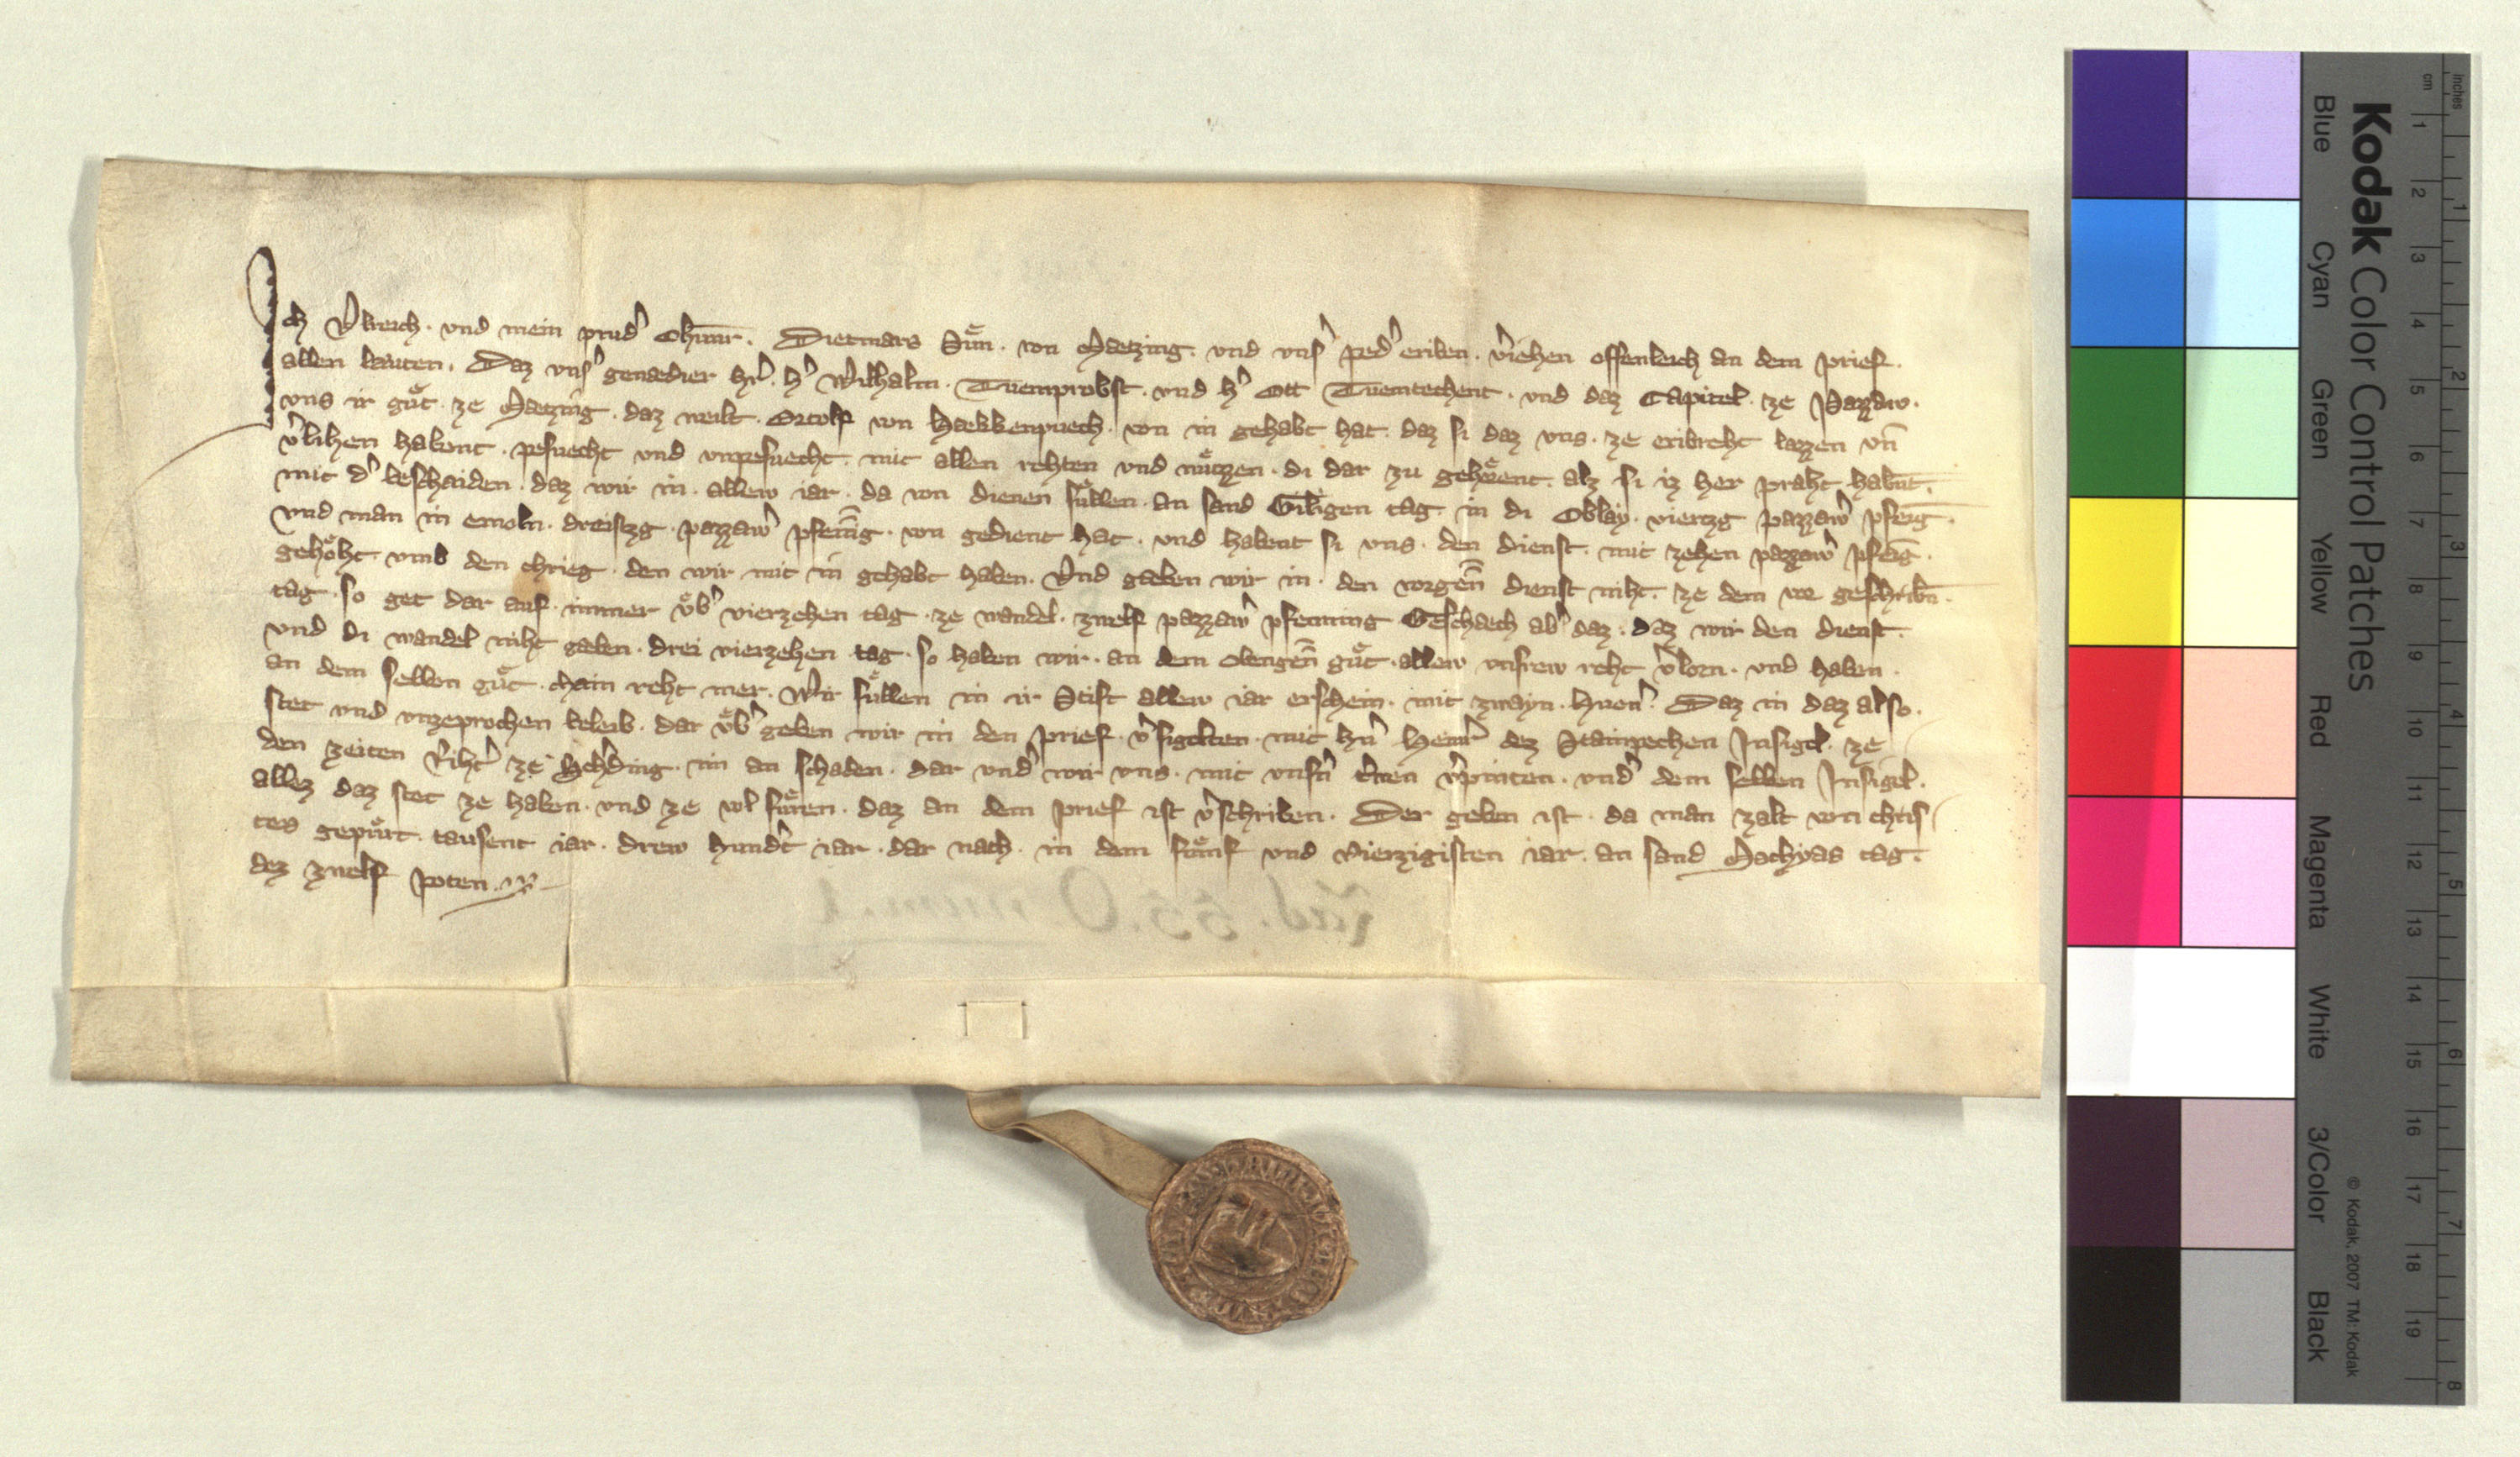 Ich Ulreich · und mein prud' Chunr · Dietmars Sün · von Maetzing · und uns' ped' eriben · v'iehen offenleich an dem prief ·
allen laeuten · Daz uns' genaedier hr' · h' Wilhalm · Tuemprobst · und h' Ott Tuemtechent · und daz Capitel · ze Pazzaw ·
uns ir guͤt · ze Maetzing · daz weilt · Ortolf von Haekkenpuech · von in gehabt hat · daz si daz uns · ze eribreht lazzen uñ
v'lihen habent · pesuecht und unpesuecht · mit allen rehten und nuͤtzen · di dar zu gehoͤrent · alz si iz her praht habnt ·
mit d' beschaiden · daz wir in · allew iar · da von dienen suͤllen · an sand Giligen tag · in di Oblay · viertzg pazzaw' pfeīg ·
und man in emoln · dreistzg · pazzaw' pfenīg · von gedient hat · und habent si uns · den dienst · mit zehen pazzaw' pfēīg ·
gehoͤht · umb den chrieg · den wir mit in gehabt haben · Und gaeben wir in · den vorgen̄ dienst niht · ze dem vor geschribn̄ ·
tag · so get dar auf · immer uͤb' vierzehen tag · ze wandel · zwelf pazzaw' pfenning Geschaech ab' daz · daz wir den dienst ·
und di wandel niht gaeben · drei vierzehen tag · so haben wir · an dem obengen̄ guͤt · allew unsrew reht v'lorn · und haben ·
an dem selben guͤt · chain reht mer · Wir suͤllen in ir Stift allew iar erschein · mit zwayn · huen' · Daz in daz also ·
stet und unzeprochen beleib · dar uͤb' geben wir in den prief · v'sigelten · mit hn' Heinr' dez Stainpechen Insigel · ze
den zeiten Riht' ze Scherding · im an schaden · dar und' wir uns · mit unsn' trwen v'pinten · und' dem selben Insigel ·
allez daz stet ze haben · und ze vol fuͤren · daz an dem prief ist v'schriben · Der geben ist · da man zalt von chris
tes gepuͤrt · tausent iar · drew hund't iar · dar nach · in dem fuͤmf und vierzigisten iar · an sand Mathyas tag ·
dez zwelf poten ·
Kodak Color Control Patches
Blue Cyan Green Yellow Red Magenta White 3/Color Black
© Kodak, 2007 TM: Kodak
inches 1 2 3 4 5 6 7 8
cm 1 2 3 4 5 6 7 8 9 10 11 12 13 14 15 16 17 18 19